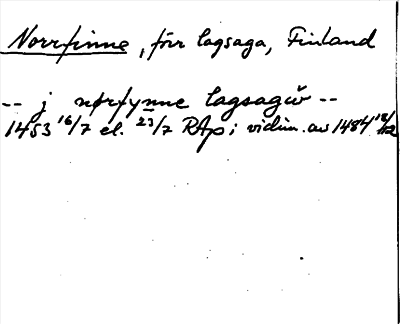 Norrfinne, förr lagsaga, Finland
-- j nørfynne lagsagw̌ --
1453 16/7 el. 23/7 RAp; vidim. av 1484 18/12